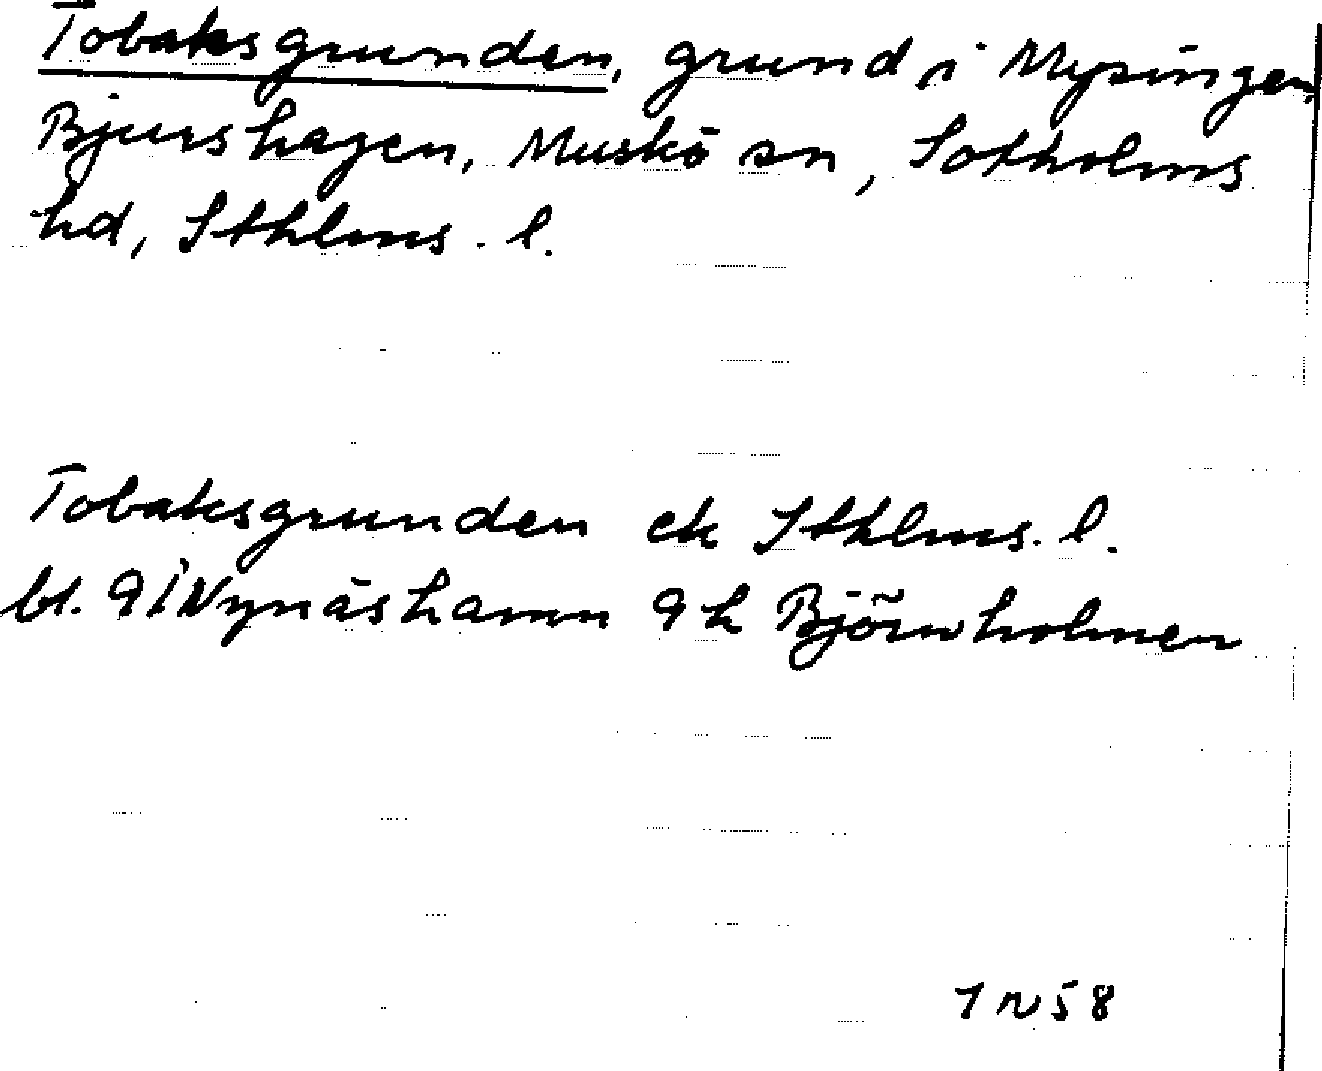 Tobaksgrunden, grund i Mysingen,
Bjurshagen, Muskö sn, Sotholms
hd, Sthlms. l.
Tobaksgrunden ek Sthlms. l.
bl. 9 I Nynäshamn 9 h Björnholmen
1 N 58